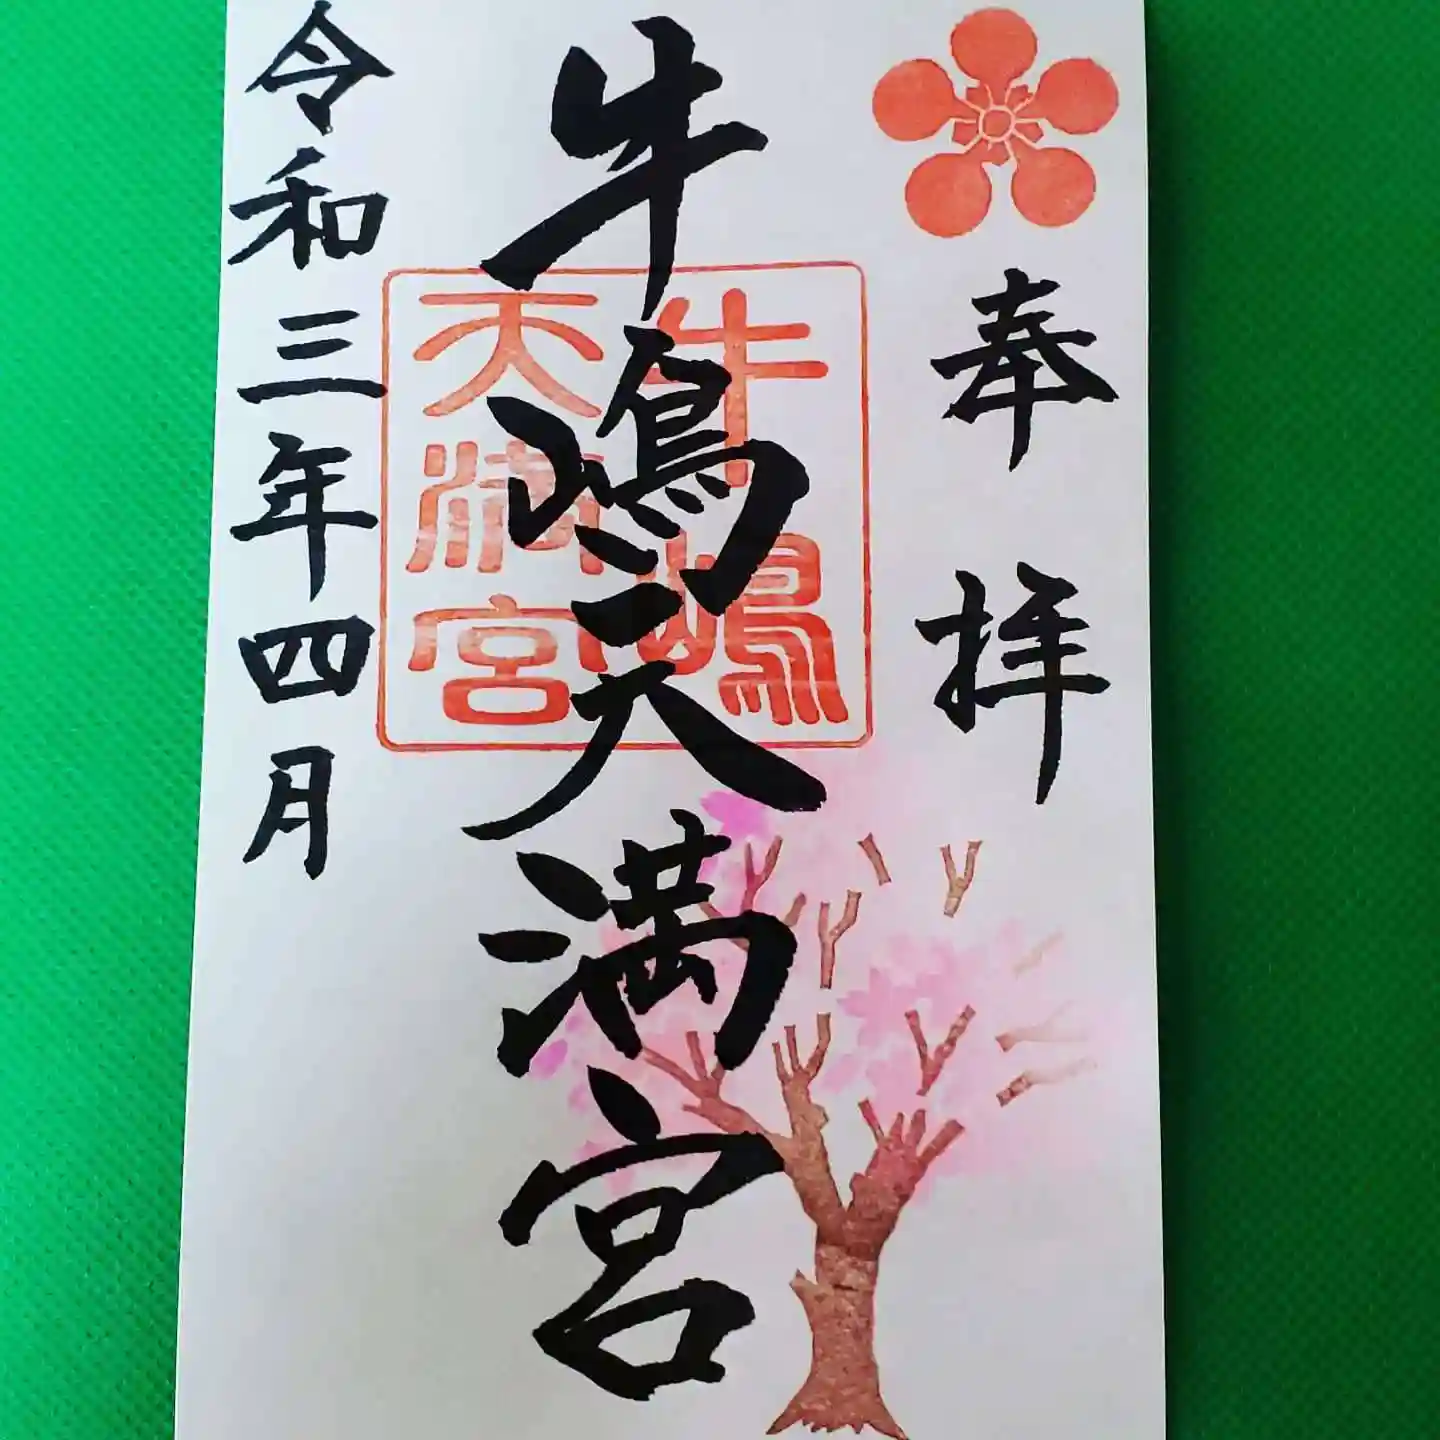 奉拝
牛嶋天満宮
牛嶋
天満宮
令和三年四月